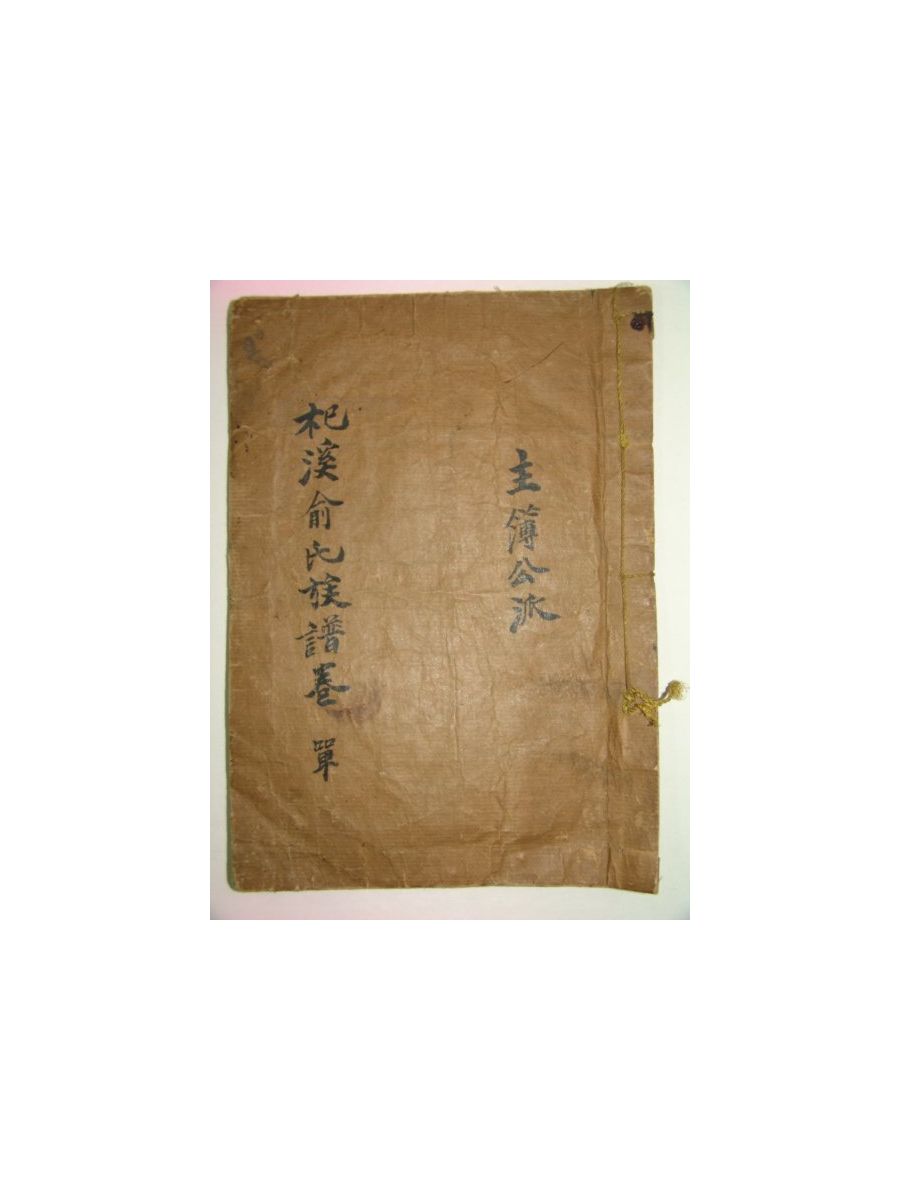 主簿公派
杞溪俞氏族譜卷 單